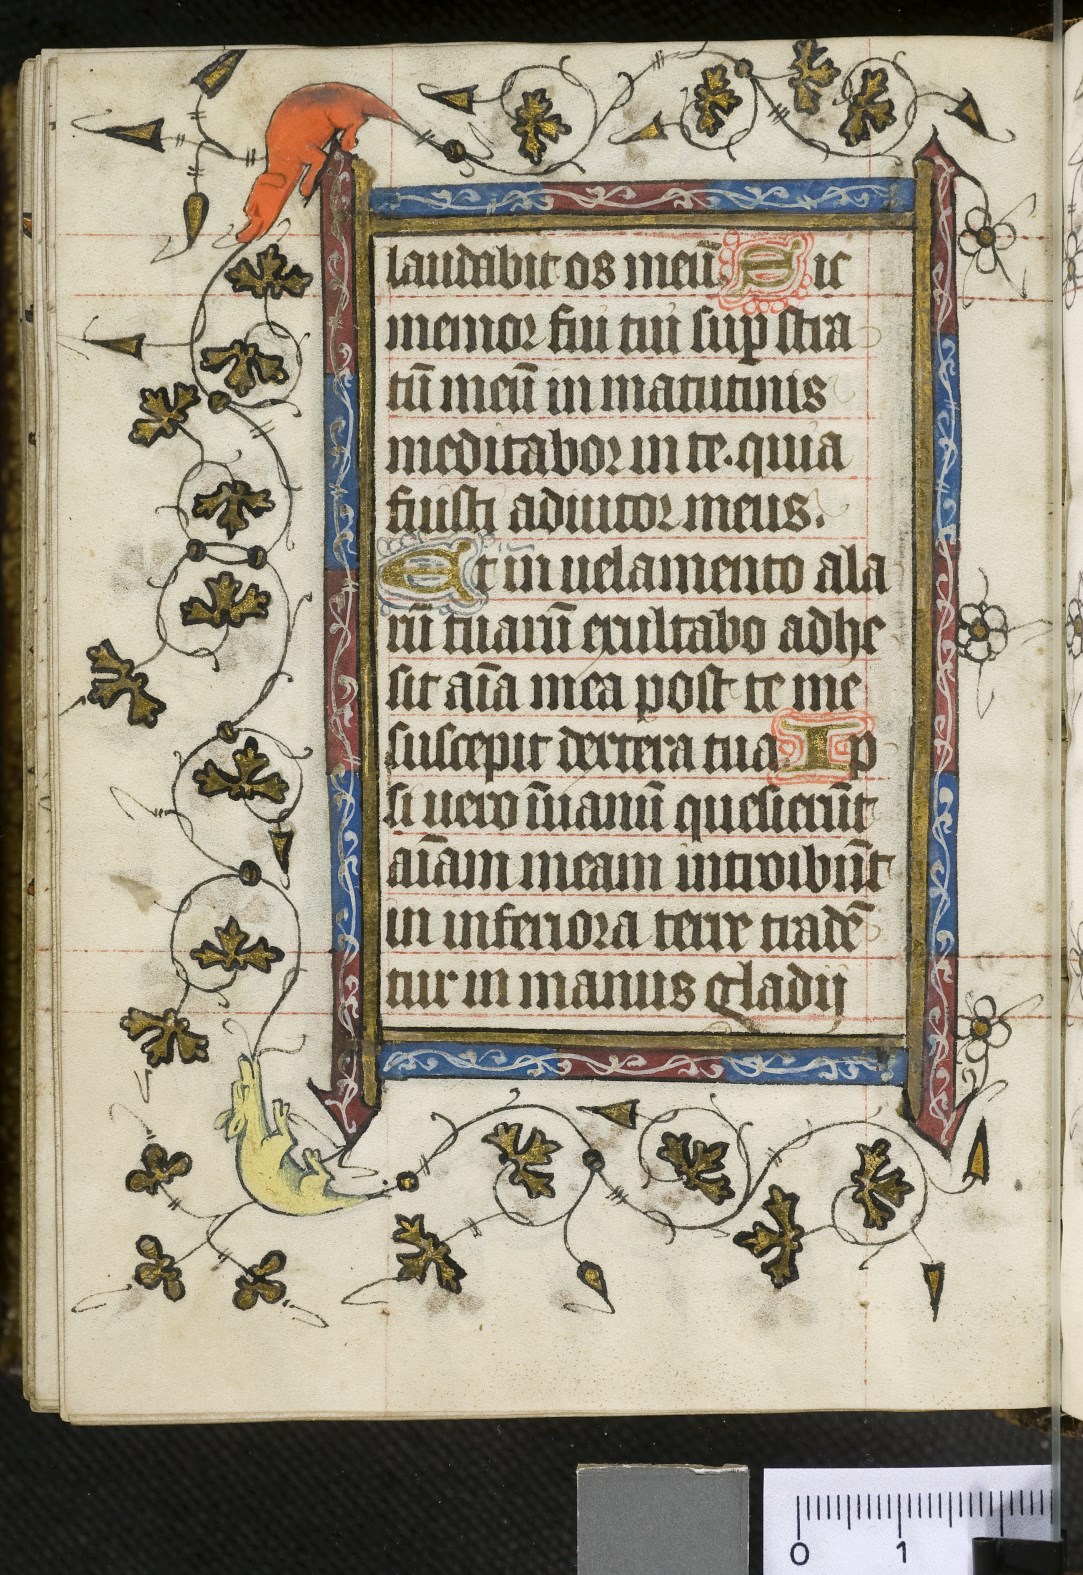 laudabit os meū. Sic
memor fui tui sup stra
tū meū in matutinis
meditabor in te. quia
fuisti adiutor meus.
Et in uelamento ala
rū tuarū exultabo adhe
sit aīa mea post te me
suscepit dextera tua. Ip
si uero ī uanū quesierūt
aīam meam introibūt
in inferiora terre tradē
tur in manus gladij
0 1